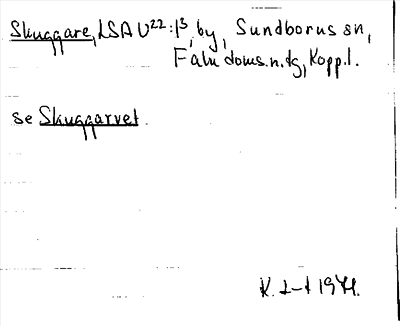 Skuggare, LSA U²²:13, by, Sundborns sn,
Falu doms.n.tg, Kopp.l.
se Skuggarvet.
K. 1971.